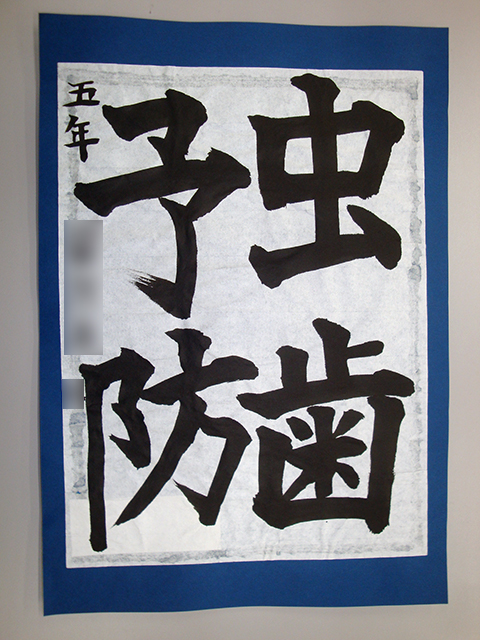 虫歯
予防
五年